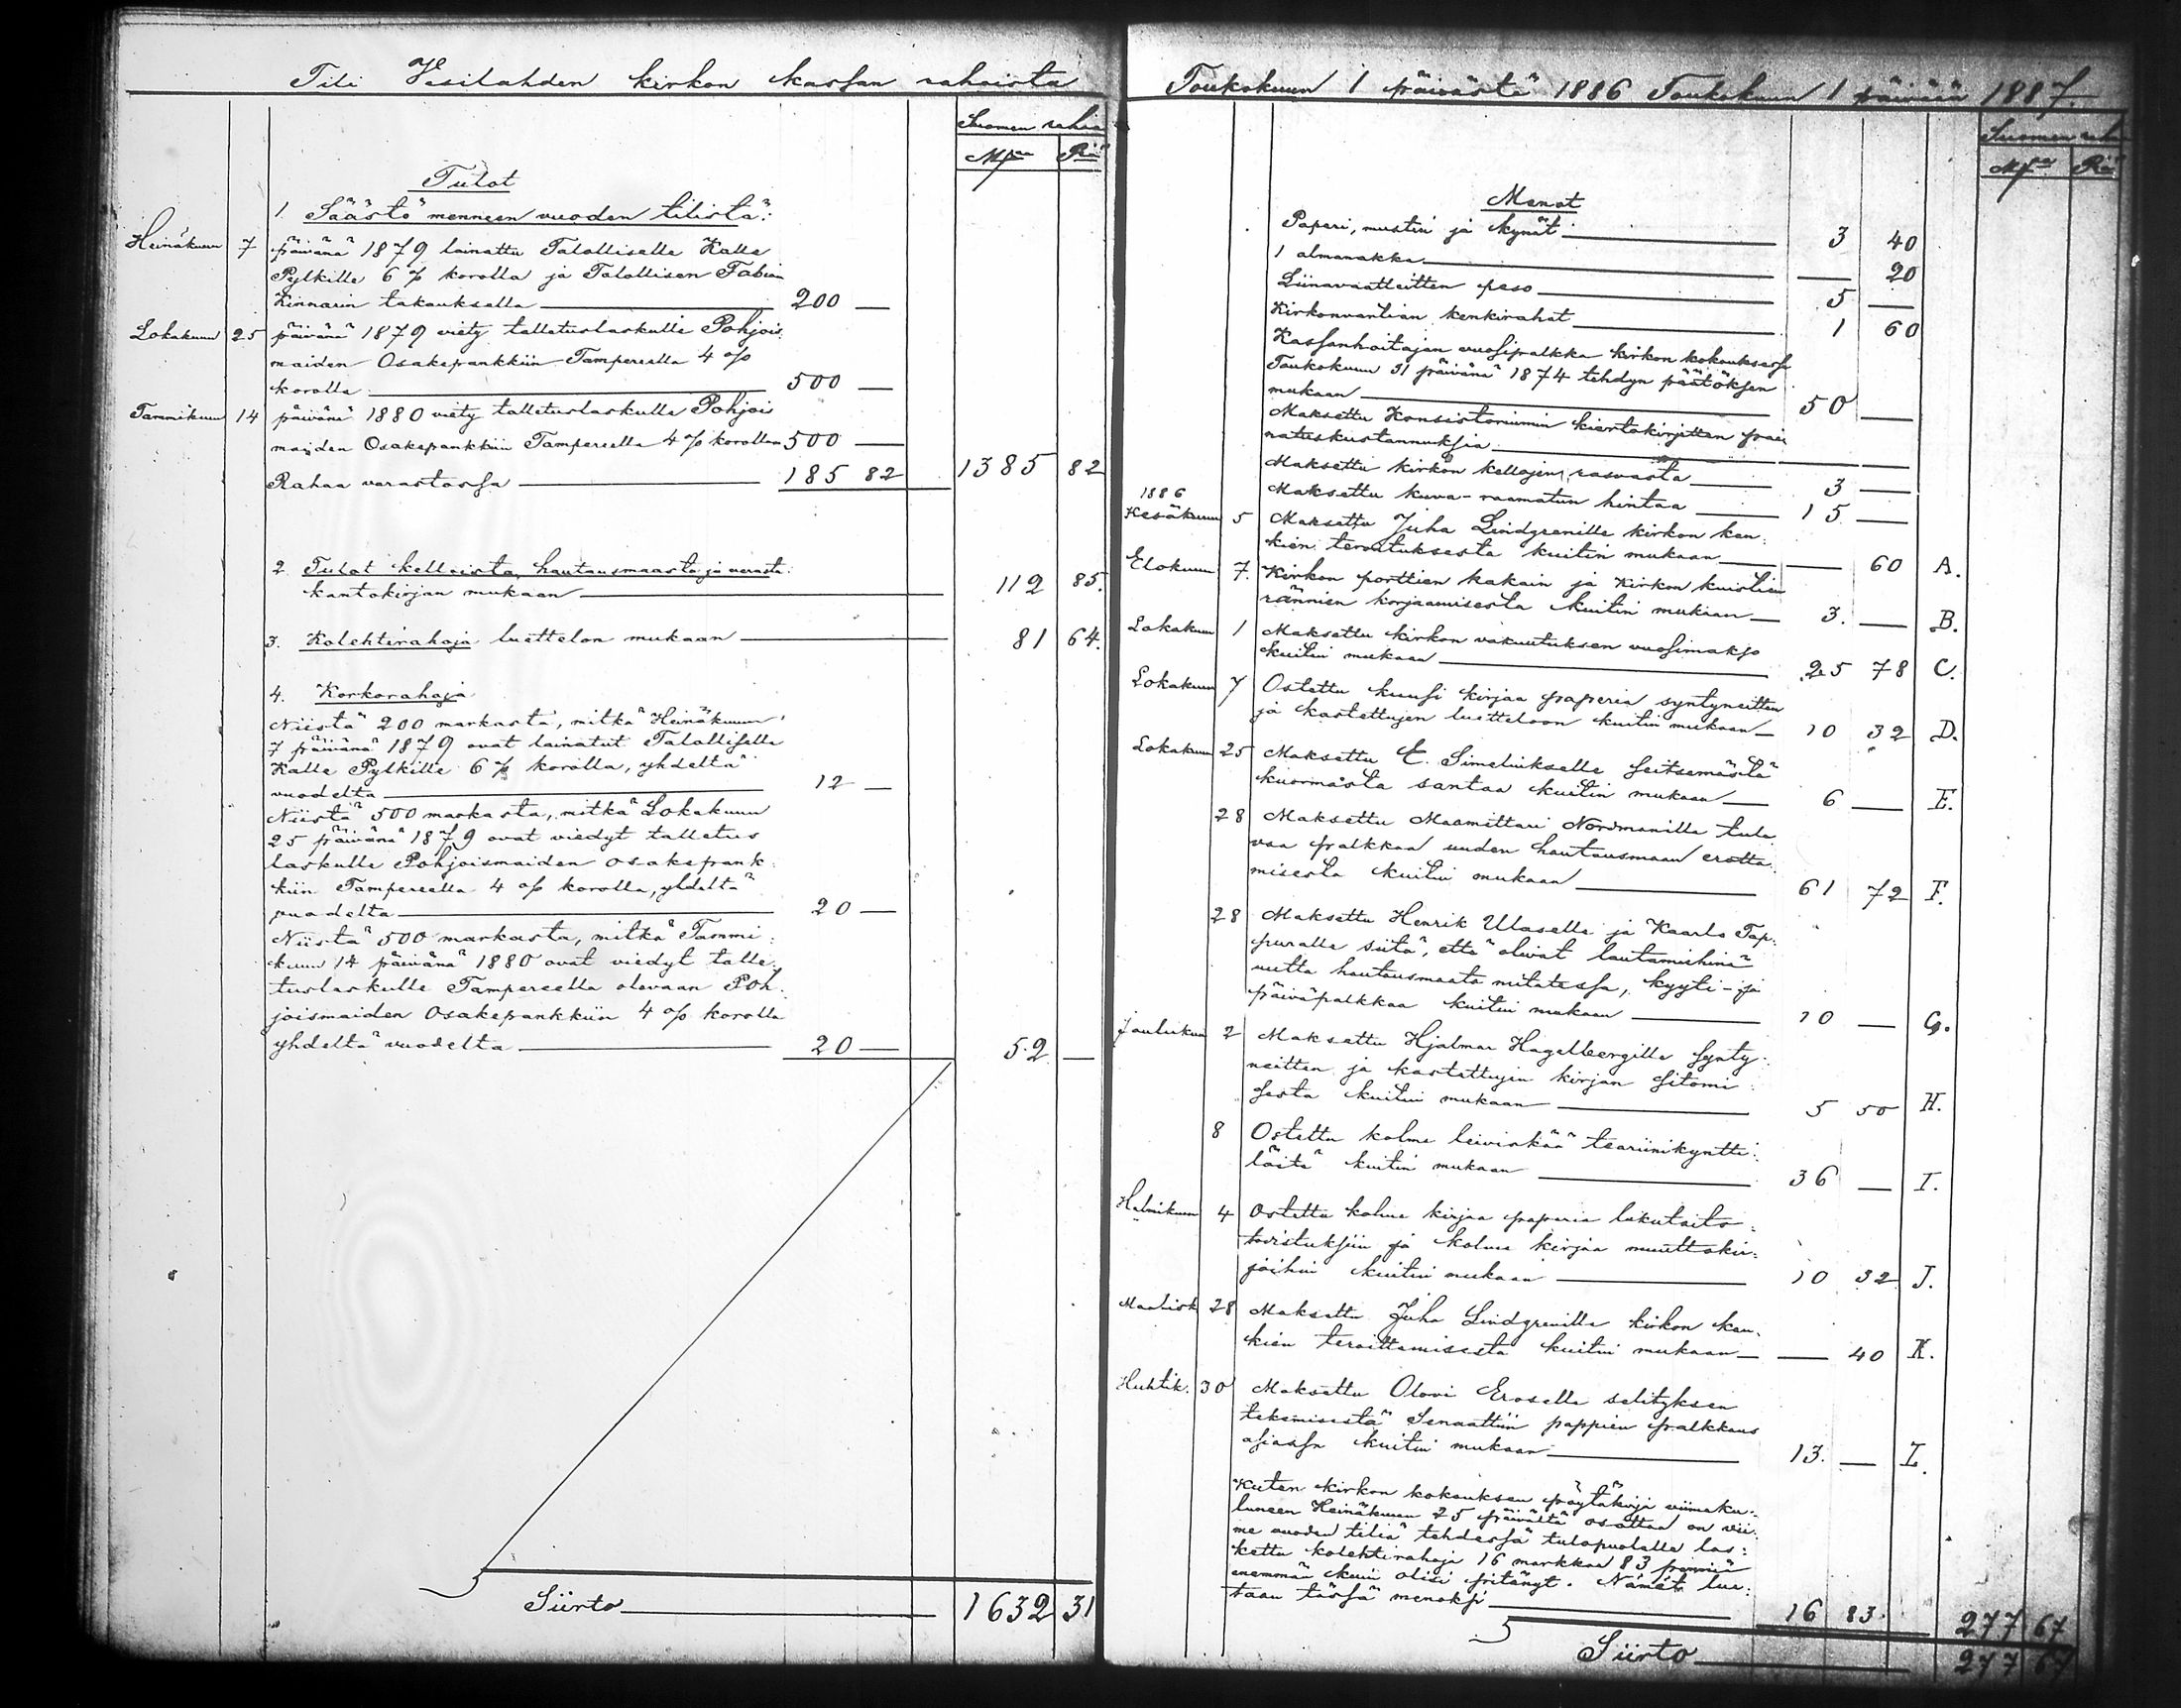 Tili Vesilahden kirkon kassan rahoista
Suomen rahaa
Mkaa Piä
Tulot
1. Säästö menneen vuoden tilistä:
Heinäkuun 7 päivänä 1879 lainattu Talolliselle Kalle
Pylkille 6 % korolla ja Talollisen Fabian
Kinnarin takauksella 200 —
Lokakuun 25 päivänä 1879 viety talletuslaskulle Pohjois-
maiden Osakepankkiin Tampereella 4 %
korolla 500 —
Tammikuun 14 päivänä 1880 viety talletuslaskulle Pohjois
maiden Osakepankkiin Tampereella 4 % korollan 500 —
Rahaa varastossa 185 82 1385 82
2. Tulot kelloista, hautausmaasta ja verasta:
kantokirjan mukaan 112 85.
3. Kolehtirahoja luettelon mukaan 81 64.
4. Korkorahoja
Niistä 200 markasta, mitkä Heinäkuun
7 päivänä 1879 ovat lainatut Talolliselle
Kalle Pylkille 6 % korolla, yhdeltä
vuodelta 12 —
Niistä 500 markasta, mitkä Lokakuun
25 päivänä 1879 ovat viedyt talletus
laskulle Pohjoismaiden osakepank:
kiin Tampereella 4 % korolla, yhdeltä
vuodelta 20 —
Niistä 500 markasta, mitkä Tammi:
kuun 14 päivänä 1880 ovat viedyt talle:
tuslaskulle Tampereella olevaan Poh:
joismaiden Osakepankkiin 4 % korolla
yhdeltä vuodelta 20 — 52 —
Siirto 1632 31
Toukokuun 1 päivästä 1886 Toukokuun 1 päivään 1887.
Suomen raha
Mkaa Piä
Menot
Paperi, mustin ja kynät 3 40
1 almanakka — 20
Liinavaatteitten peso 5 —
Kirkonvartian kenkirahat 1 60
Kassanhoitajan vuosipalkka kirkon kokouksessa
Toukokuun 31 päivänä 1874 tehdyn päätöksen
mukaan 50 —
Maksettu Konsistoriumin kiertokirjetten pai:
natuskustannuksia — —
Maksettu kirkon kellojen rasvasta 3 —
Maksettu kuva-raamatun hintaa 15 —
1886
Kesäkuun 5 Maksettu Juha Lindgrenille kirkon kan:
kien teroituksesta kuitin mukaan — 60 A.
Elokuun 7. Kirkon porttien hakain ja kirkon kuistien
rännien korjaamisesta kuitin mukaan 3. — B.
Lokakuun 1 Maksettu kirkon vakuutuksen vuosimakso
kuitin mukaan 25 78 C.
Lokakuun 7 Ostettu kuusi kirjaa paperia syntyneitten
ja kastettujen luetteloon kuitin mukaan 10 32 D.
Lokakuun 25 Maksettu E. Simelinkselle seitsemästä
kuormasta santaa kuitin mukaan 6 — E.
28 Maksettu Maamittari Nordmanille tule
vaa palkkaa uuden hautausmaan erotta:
misesta kuitin mukaan 61 72 F.
28 Maksettu Henrik Ulaselle ja Kaarlo Tap:
puralle siitä, että olivat lautamiehinä
uutta hautausmaata mitatessa, kyyti- ja
päiväpalkkaa kuitin mukaan 10 — G.
Joulukuu 2 Maksettu Hjalmar Hagelbergille synty:
neitten ja kastettujen kirjan sitomi
sesta kuitin mukaan 5 50 H.
8 Ostettu kolme leiviskää teariinikyntti:
löitä kuitin mukaan 36 — I.
Helmikuun 4 Ostettu kolme kirjaa paperia lukutaito:
todistuksiin ja kolme kirjaa muuttokir:
joihin kuitin mukaan 10 32 J.
Maalisk. 28 Maksettu Juha Lindgrenille kirkon kan:
kien teroittamisesta kuitin mukaan — 40 K.
Huhtik. 30 Maksettu Olovi Eroselle selityksen
tekemisestä Senaattiin pappien palkkaus
asiassa kuitin mukaan 13. — L.
Kuten kirkon kokouksen pöytäkirja viimeku:
luneen Heinäkuun 25 päivältä osottaa on vii:
me vuoden tiliä tehdessä tulopuolelle las:
kettu kolehtirahoja 16 markkaa 83 penniä
enemmän kuin olisi pitänyt. Nämät lue:
taan tässä menoksi 16 83. 277 67
Siirto 277 67